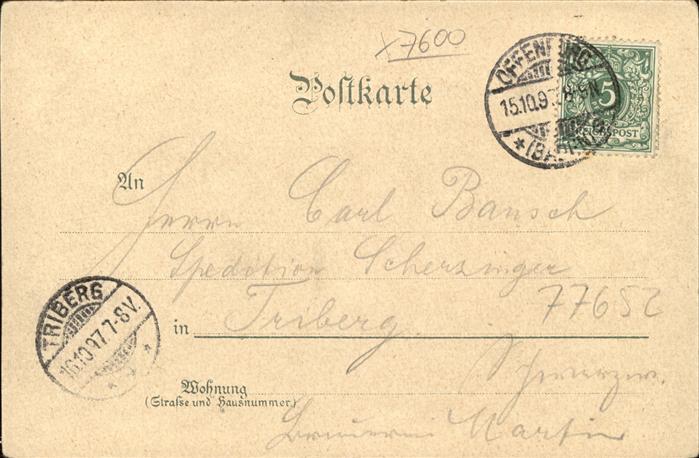 x7600
Postkarte
OFFENBURG
15.10.97. 8-9N.
*(BADEN)*
5
REICHSPOST
An
Herrn Carl Bansch
Spedition Scherzinger
77652
in Triberg.
TRIBERG
16.10.97.7-8V.
* * *
Schwarzw.
Wohnung
(Straße und Hausnummer)
Martin